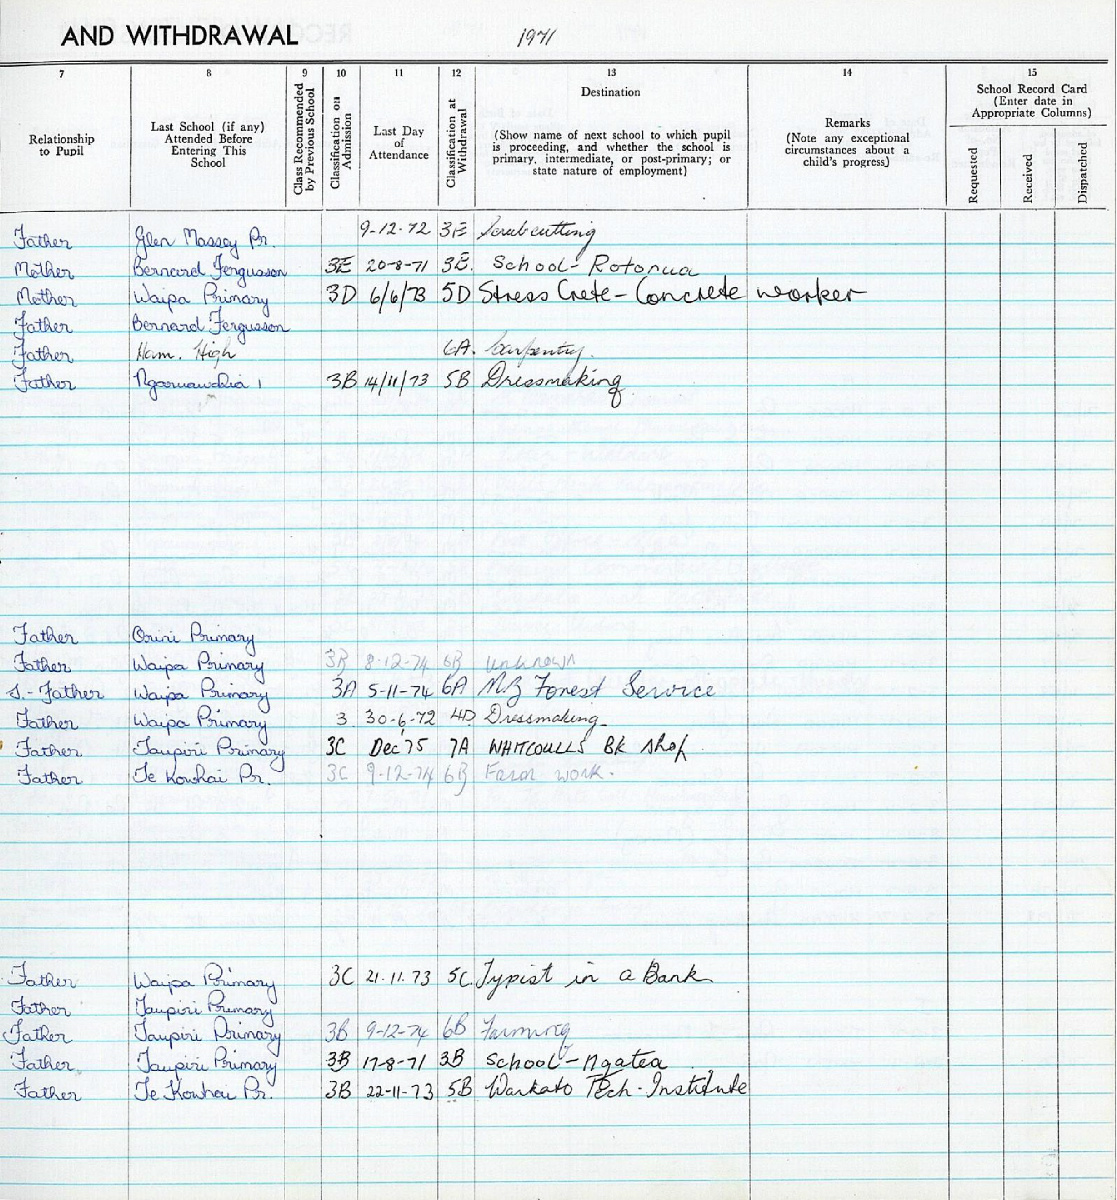 AND WITHDRAWAL 1971
7 8 9 10 11 12 13 14 15
Relationship to Pupil
Last School (if any) Attended Before Entering This School
Class Recommended by Previous School
Classification on Admission
Last Day of Attendance
Classification at Withdrawal
Destination
(Show name of next school to which pupil is proceeding, and whether the school is primary, intermediate, or post-primary; or state nature of employment)
Remarks
(Note any exceptional circumstances about a child's progress)
School Record Card
(Enter date in Appropriate Columns)
Requested
Received
Dispatched
Father Glen Massey Pr. 9-12-72 3E Scrubcutting
Mother Bernard Fergusson 3E 20-8-71 3E. School - Rotorua
Mother Waipa Primary 3D 6/6/73 5D Stress Crete - Concrete worker
Father Bernard Fergusson
Father Ham. High 6A. Carpentry.
Father Ngaruawahia 3B 14/11/73 5B Dressmaking
Father Orini Primary
Father Waipa Primary 3B 8-12-74 6B unknown
S.-Father Waipa Primary 3A 5-11-74 6A NZ Forest Service
Father Waipa Primary 3 30-6-72 4D Dressmaking
Father Taupiri Primary 3C Dec'75 7A WHITCOULLS Bk shop
Father Te Kowhai Pr. 3C 9-12-74 6B Farm work.
Father Waipa Primary 3C 21.11.73 5C Typist in a Bank
Father Taupiri Primary
Father Taupiri Primary 3B 9-12-74 6B Farming
Father Taupiri Primary 3B 17-8-71 3B School - Ngatea
Father Te Kowhai Pr. 3B 22-11-73 5B Waikato Tech. Institute